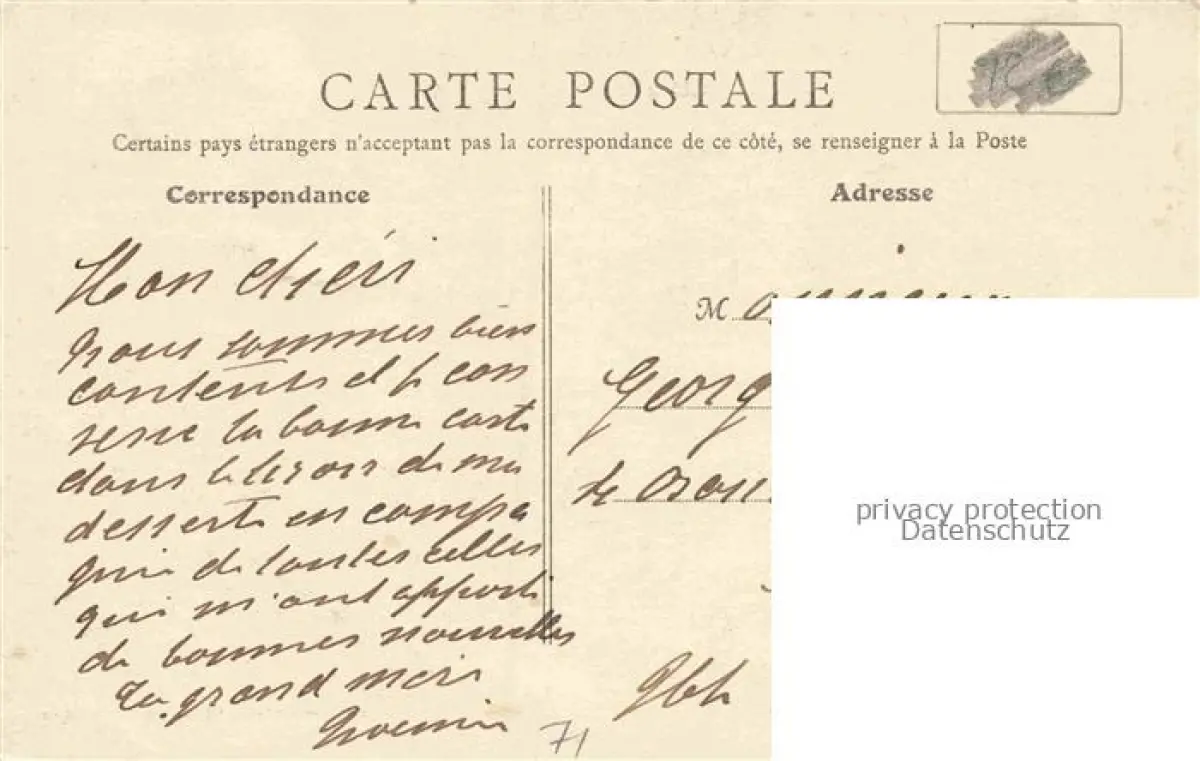 CARTE POSTALE
Certains pays étrangers n'acceptant pas la correspondance de ce côté, se renseigner à la Poste
Correspondance
Adresse
Mon chéri
nous sommes bien
contents et je con
serve la bonne carte
dans le tiroir de ma
desserte en compa
gnie de toutes celles
qui m'ont apporté
de bonnes nouvelles
Ta grand mère
M
Georg
de
71
privacy protection
Datenschutz